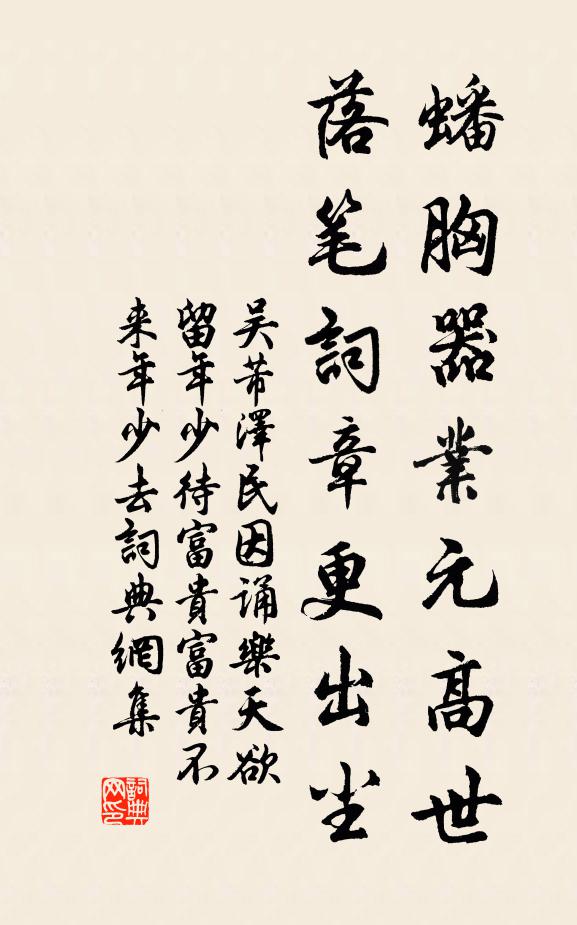 蟠胸器業元高世
落笔詞章更出尘
吴芾澤民因诵樂天欲
留年少待富貴富貴不
来年少去詞典網集
詞典网印